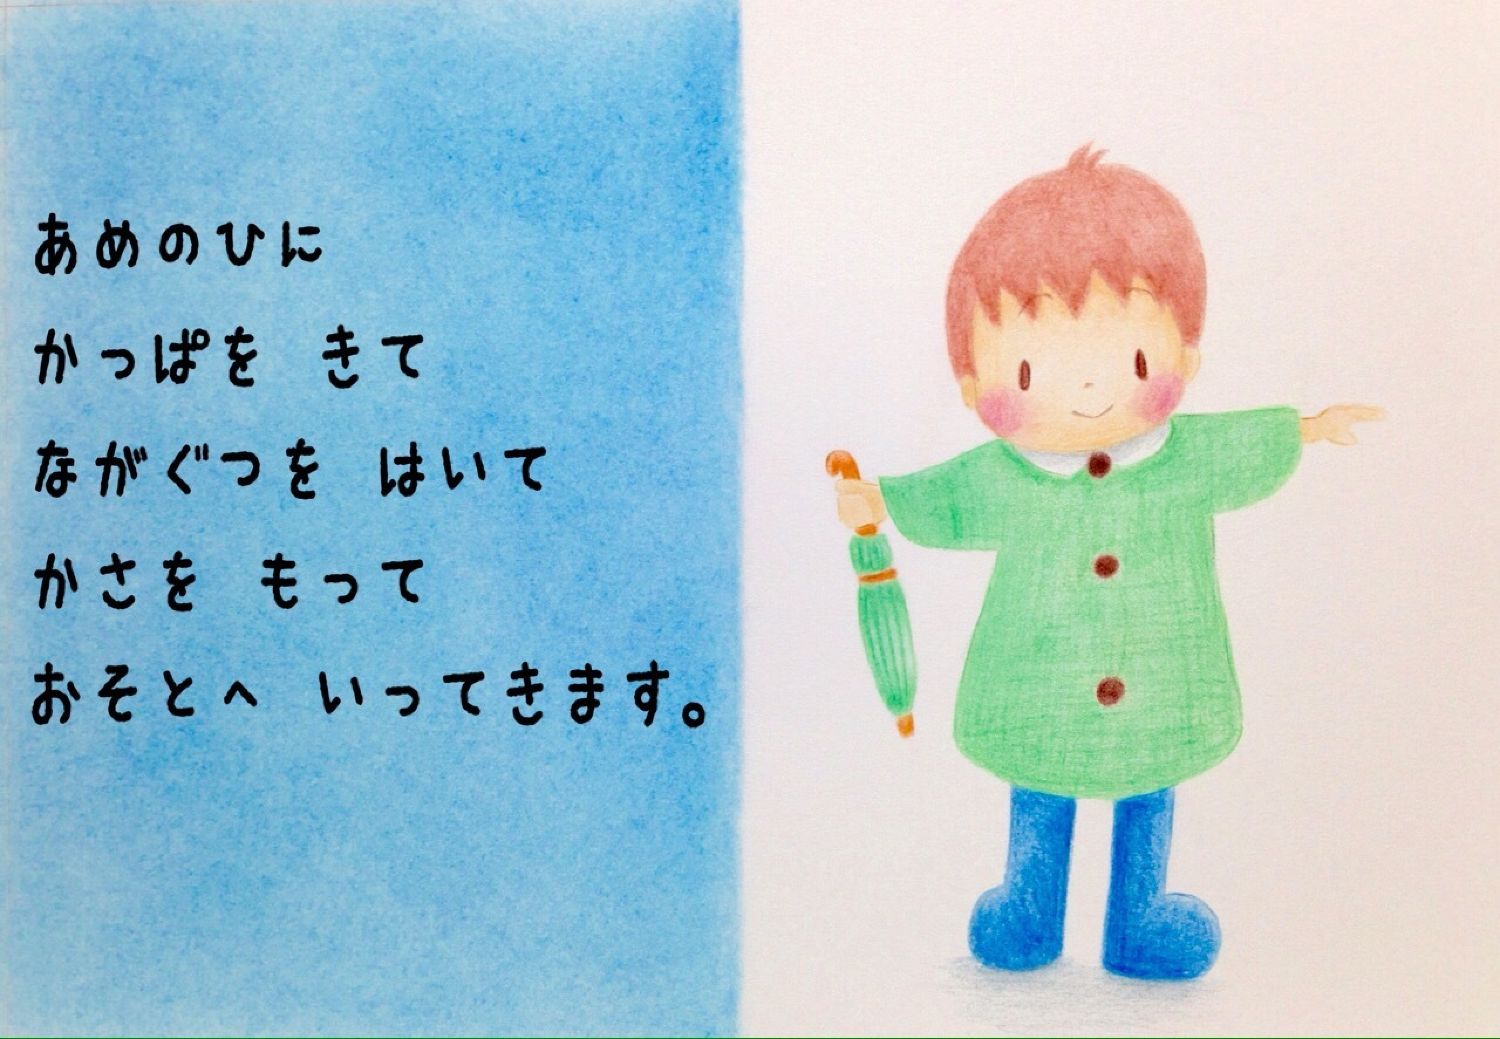 あめのひに
かっぱを きて
ながぐつを はいて
かさを もって
おそとへ いってきます。